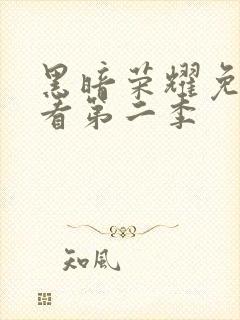 黑暗荣耀免
看第二季
知风